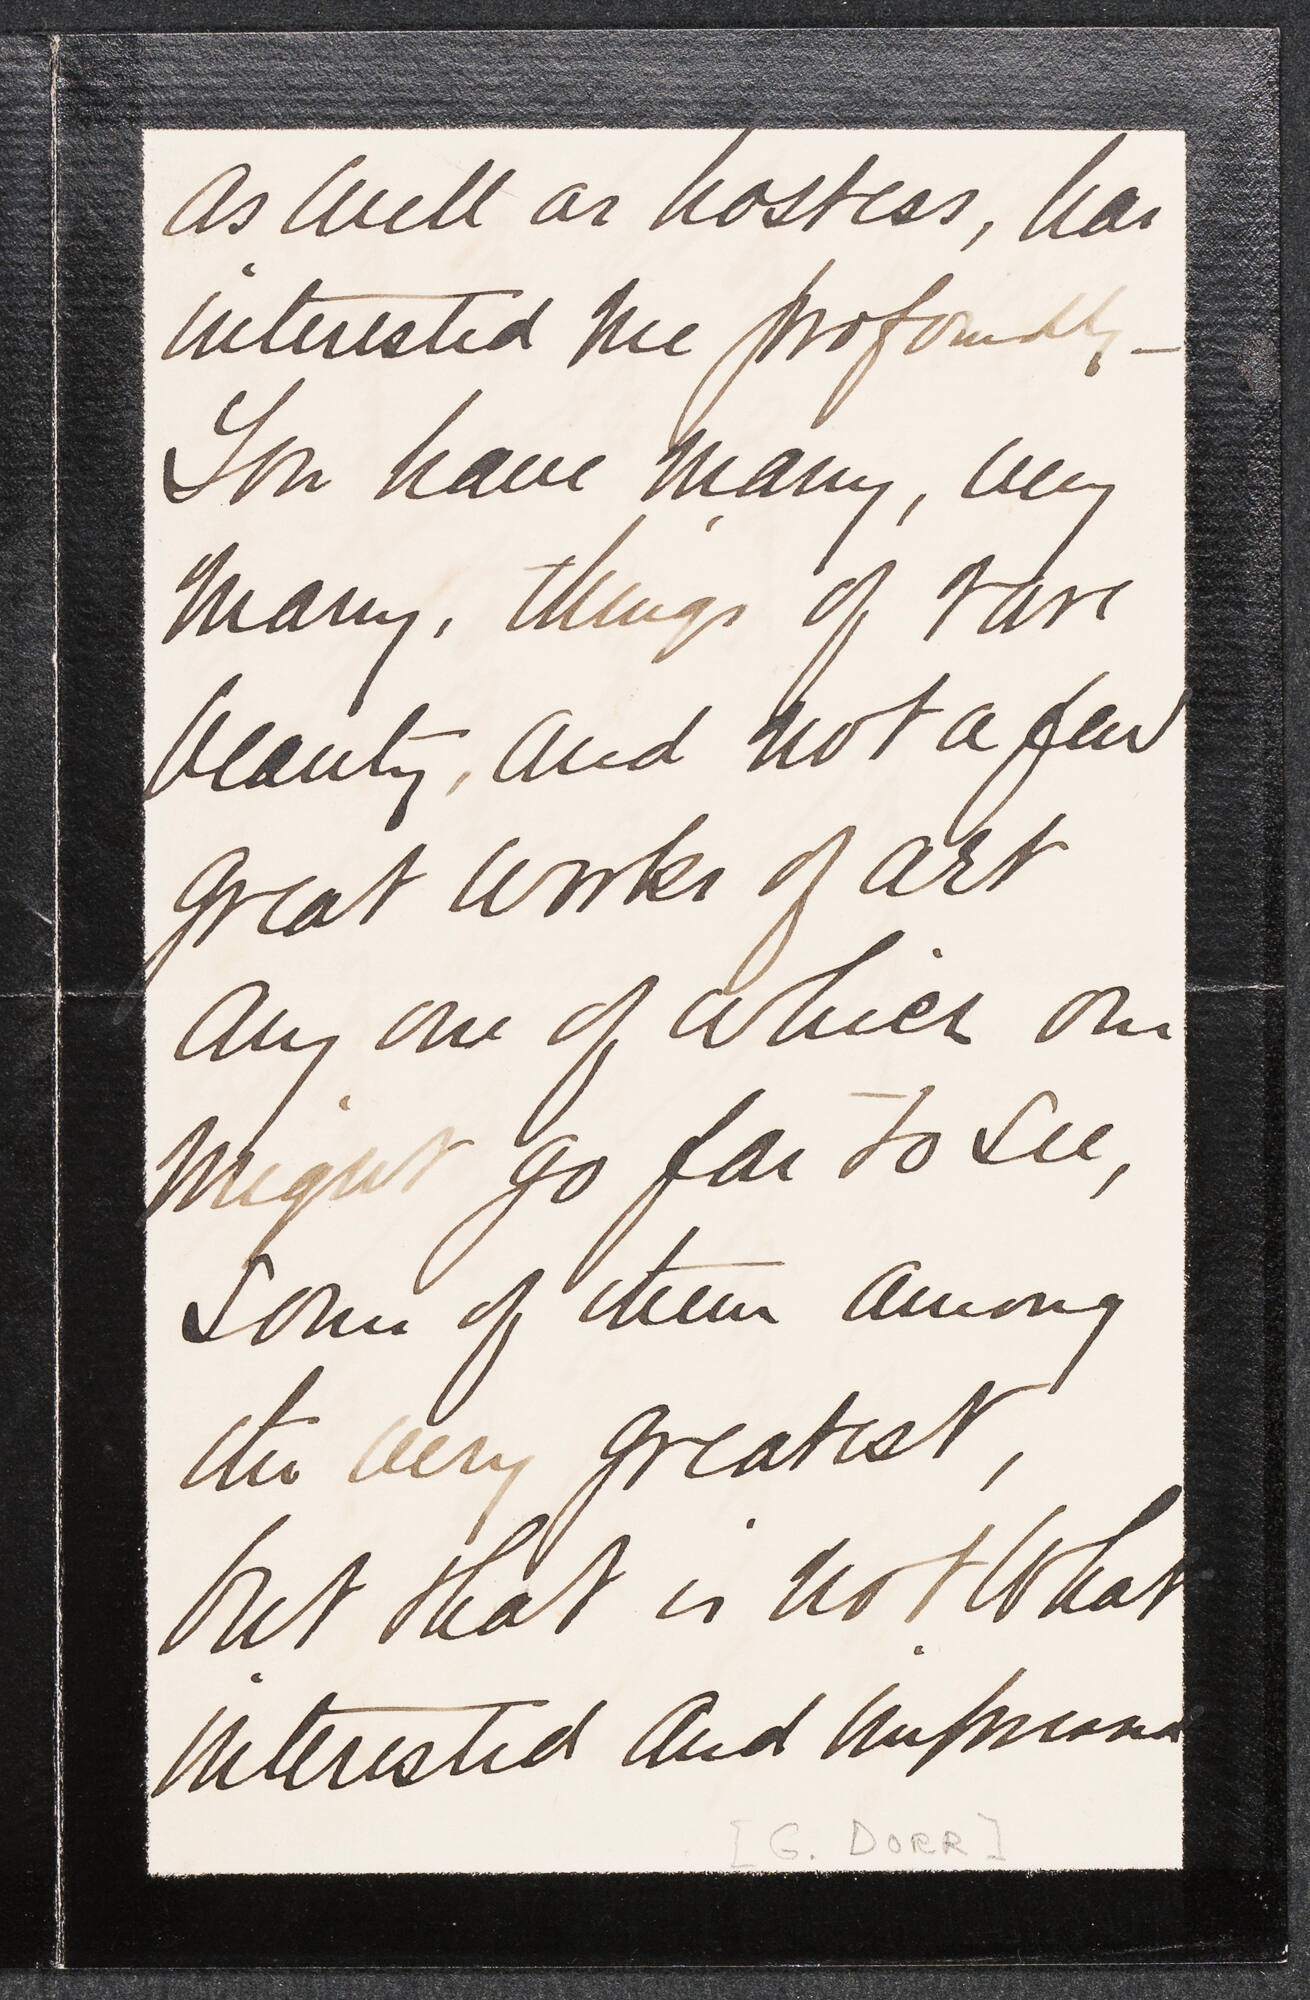 as well as hostess, has
interested me profoundly –
You have many, very
many, things of rare
beauty, and not a few
great works of art
any one of which one
might go far to see,
some of them among
the very greatest,
but that is not what
interested and impressed
[G. DORR]